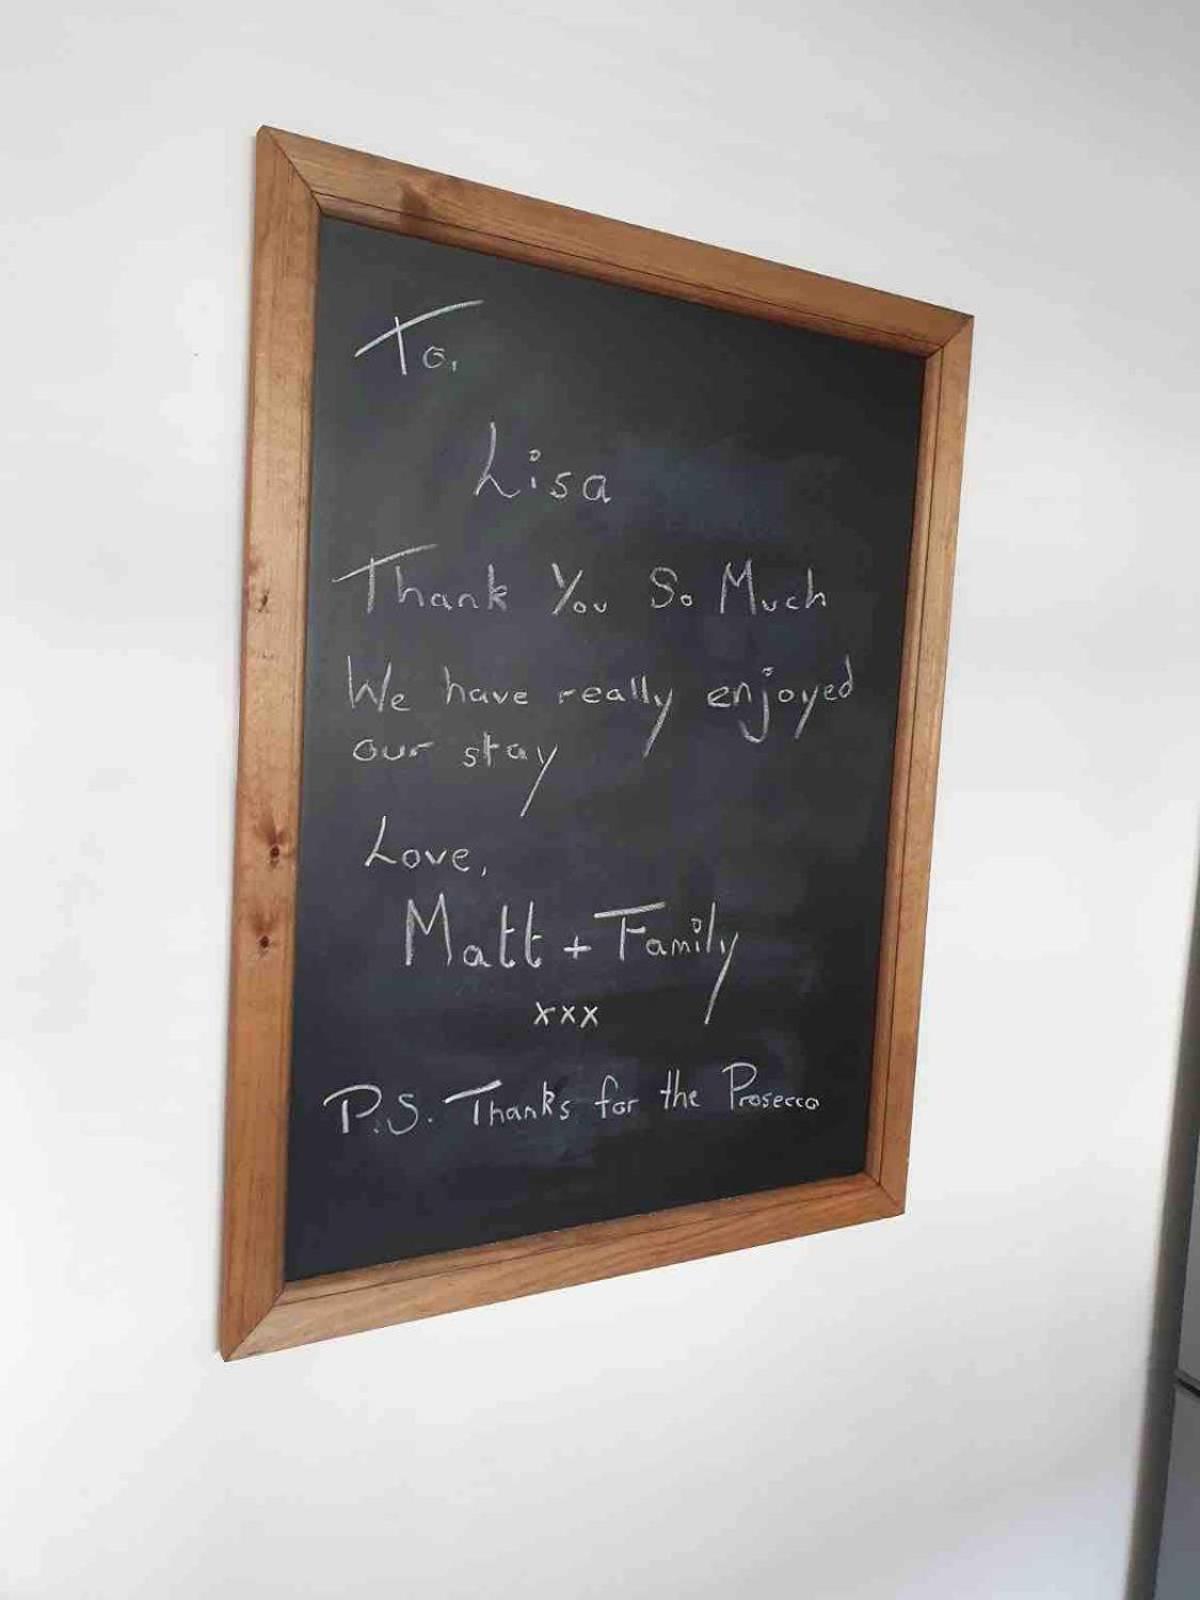 To,
Lisa
Thank You So Much
We have really enjoyed
our stay
Love,
Matt + Family
xxx
P.S. Thanks for the Prosecco